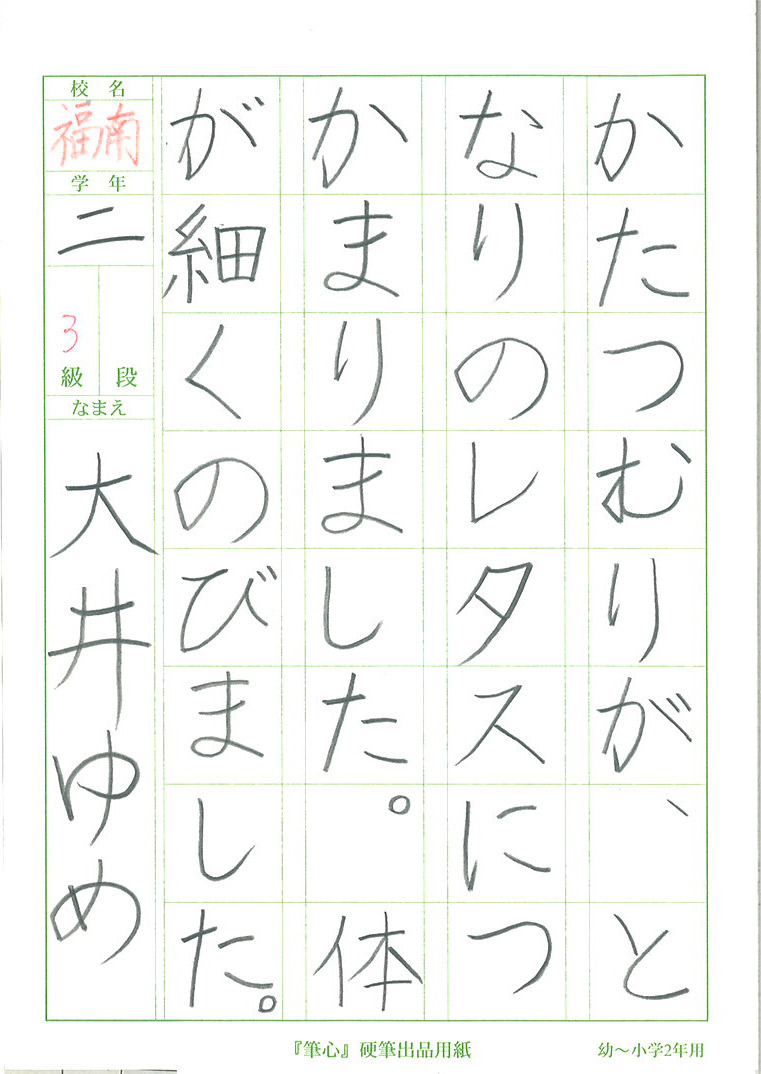 かたつむりが、と
なりのレタスにつ
かまりました。体
が細くのびました。
校名
福南
学年
二
3
級 段
なまえ
大井ゆめ
『筆心』硬筆出品用紙
幼～小学2年用